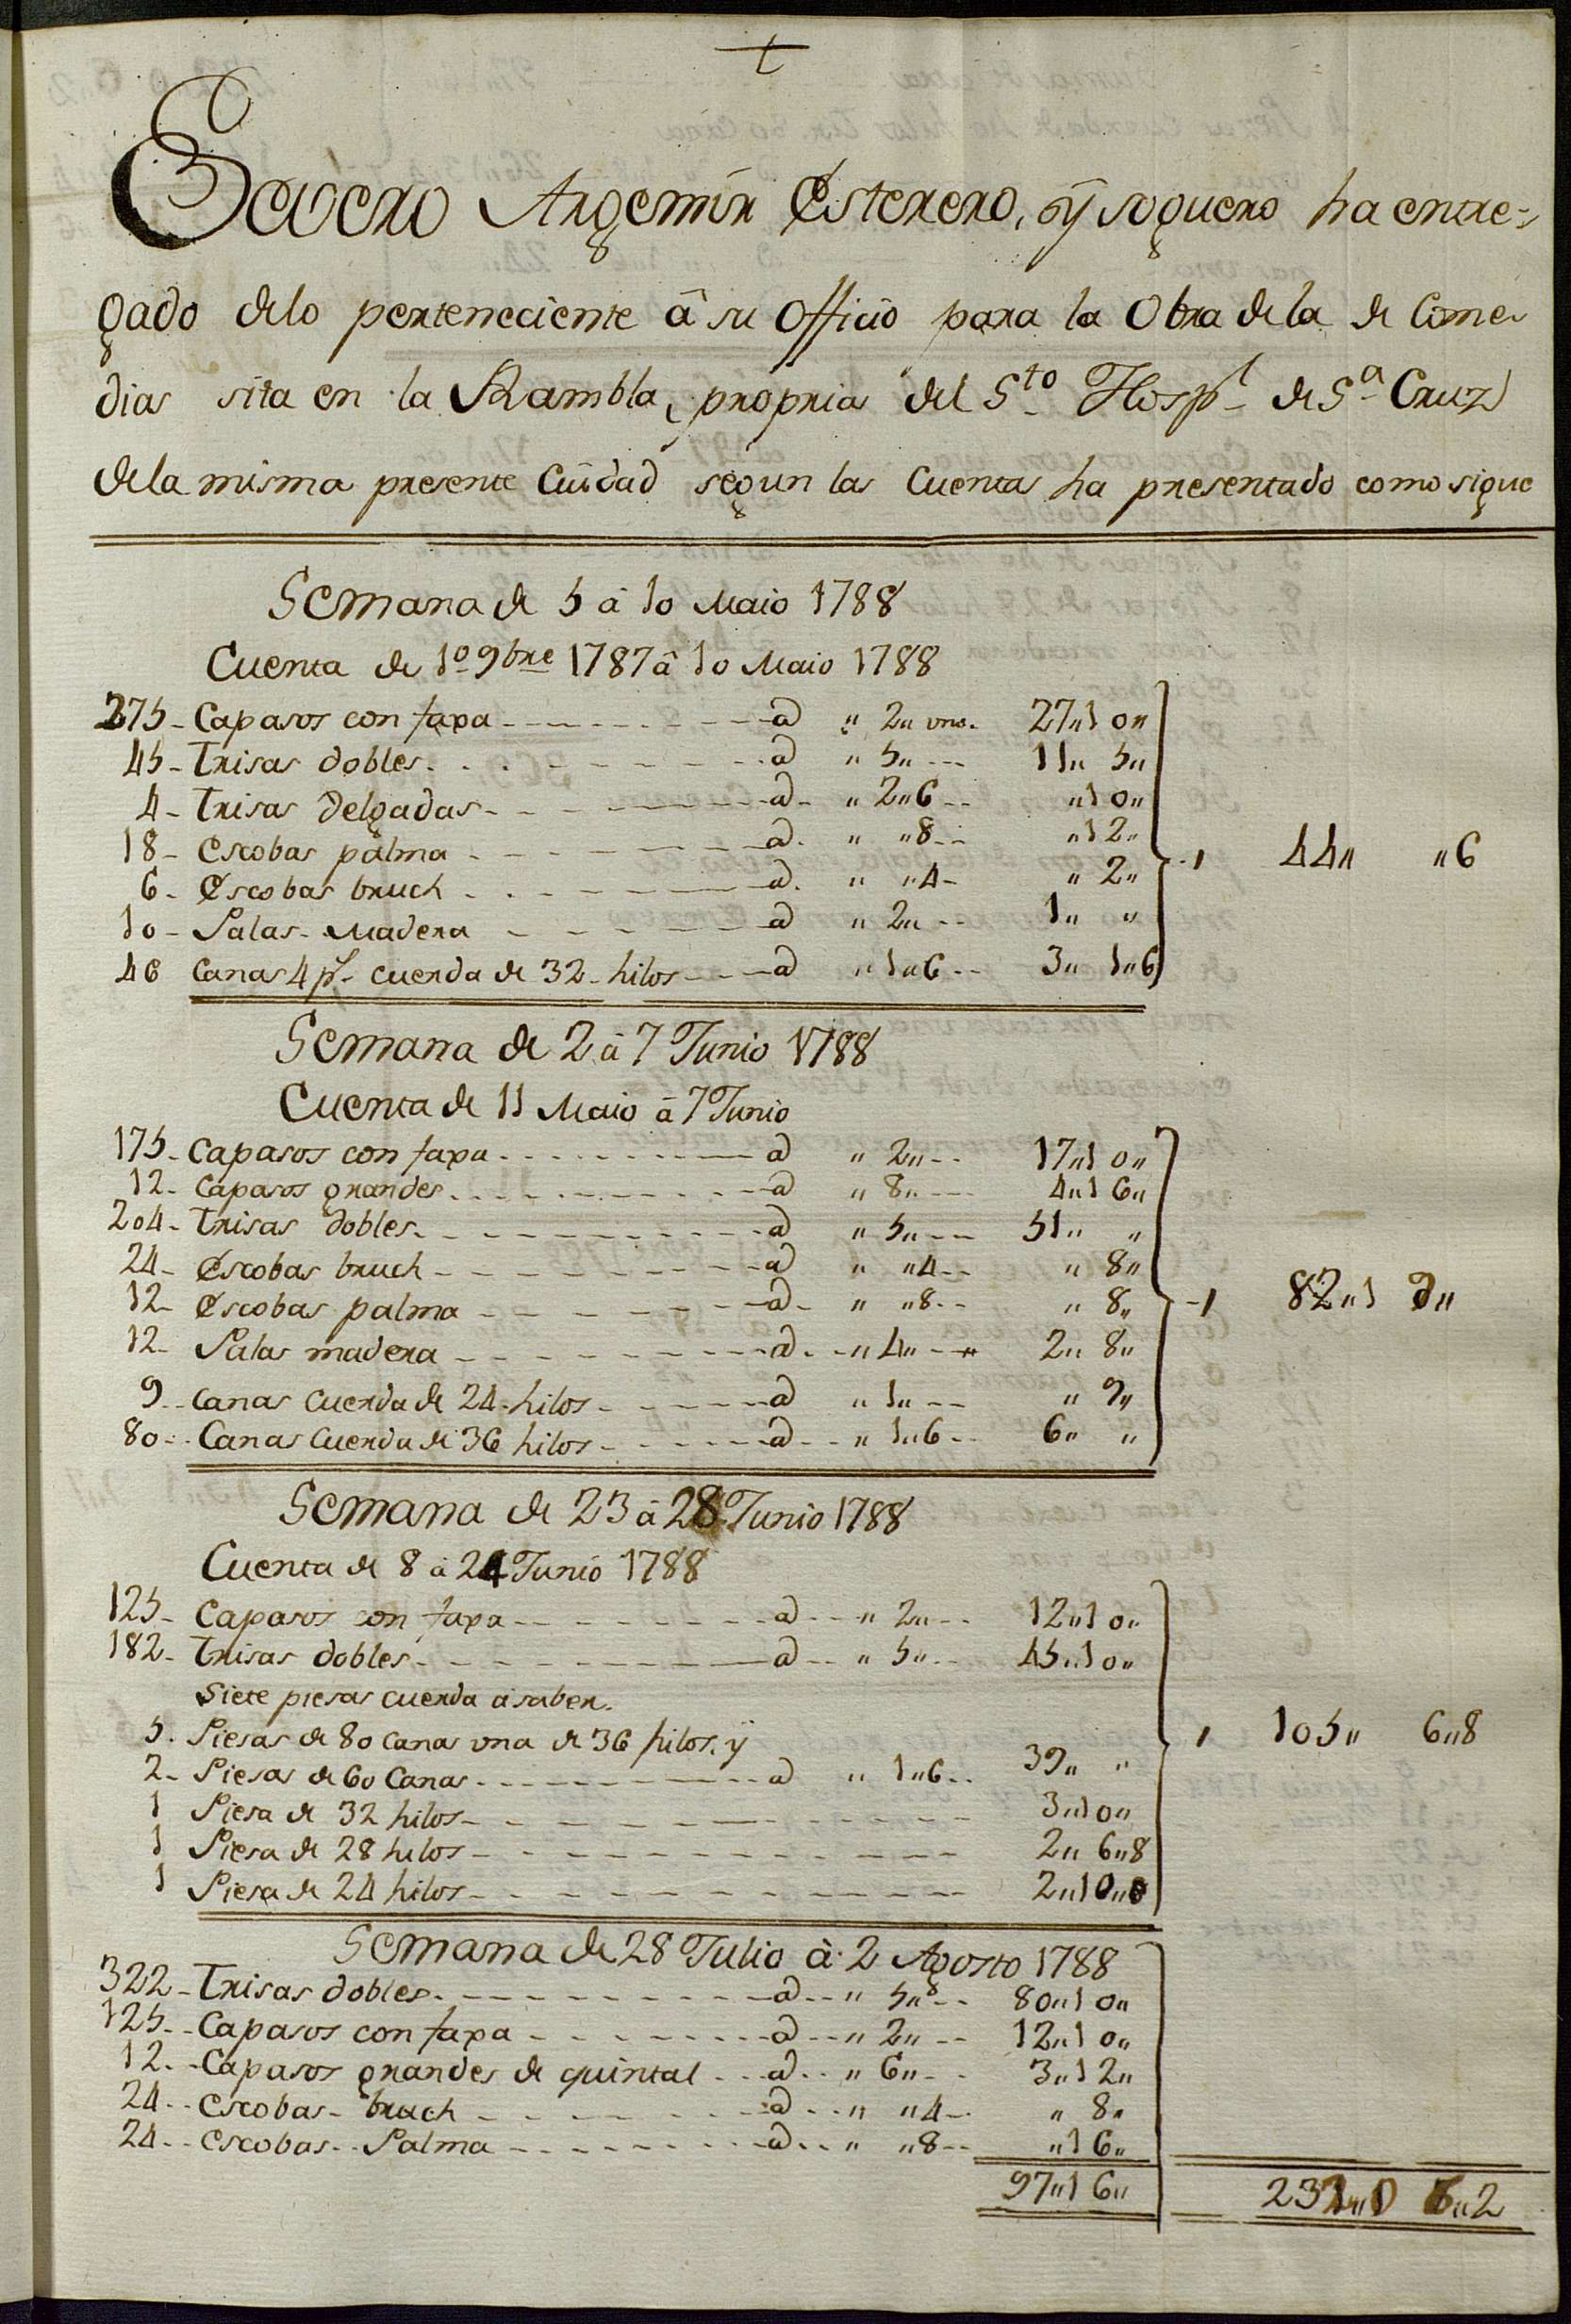 Severo Argemir Esterero, ÿ soguero ha entre-
gado delo perteneciente â su Officio para la Obra dela de Come-
dias sita en la Rambla, propria del Sto Hospl de Sa Cruz
dela misma presente Ciudad segun las Cuentas ha presentado como sigue
Semana de 5 â 10 Maio 1788
Cuenta de 1o 9bre 1787 â 10 Maio 1788
275 - Capasos con faxa - - - a " 2" uno. 27"10"
45 - Trisas dobles - - - a " 5" - - 11" 5"
4 - Trisas Delgadas - - - a " 2"6 - - "10"
18 - Escobas palma - - - a " "8 - - "12"
6 - Escobas bruch - - - a " "4 - " 2"
10 - Palas Madera - - - a " 2" - - 1" "
46 Canas 4 pl cuerda de 32 hilos - - - a " 1"6 - - 3" 1"6
44" "6
Semana de 2 â 7 Junio 1788
Cuenta de 11 Maio â 7 Junio
175 - Capasos con faxa - - - a " 2" - - 17"10"
12 - Capasos grandes - - - a " 8" - - 4"16"
204 - Trisas dobles - - - a " 5" - - 51" "
24 - Escobas bruch - - - a " "4 - - " 8"
12 - Escobas palma - - - a " "8 - - " 8"
12 - Palas madera - - - a " 4" - - 2" 8"
9 - Canas Cuerda de 24 hilos - - - a " 1" - - " 9"
80 - Canas Cuerda de 36 hilos - - - a " 1"6 - - 6" "
82"1 9"
Semana de 23 â 28 Junio 1788
Cuenta de 8 â 24 Junio 1788
125 - Capasos con faxa - - - a " 2" - - 12"10"
182 - Trisas dobles - - - a " 5" - - 45"10"
Siete piesas cuerda a saber.
5. Piesas de 80 Canas una de 36 hilos, ÿ
2 - Piesas de 60 Canas - - - a " 1"6 - - 39" "
1 Piesa de 32 hilos - - - 3"10"
1 Piesa de 28 hilos - - - 2" 6"8
1 Piesa de 24 hilos - - - 2"10"
105" 6"8
Semana de 28 Julio â 2 Agosto 1788
322 - Trisas dobles - - - a " 5" - - 80"10"
125 - Capasos con faxa - - - a " 2" - - 12"10"
12 - Capasos grandes de quintal - - - a " 6" - - 3"12"
24 - Escobas bruch - - - a " "4 - - " 8"
24 - Escobas Palma - - - a " "8 - - "16"
97"16"